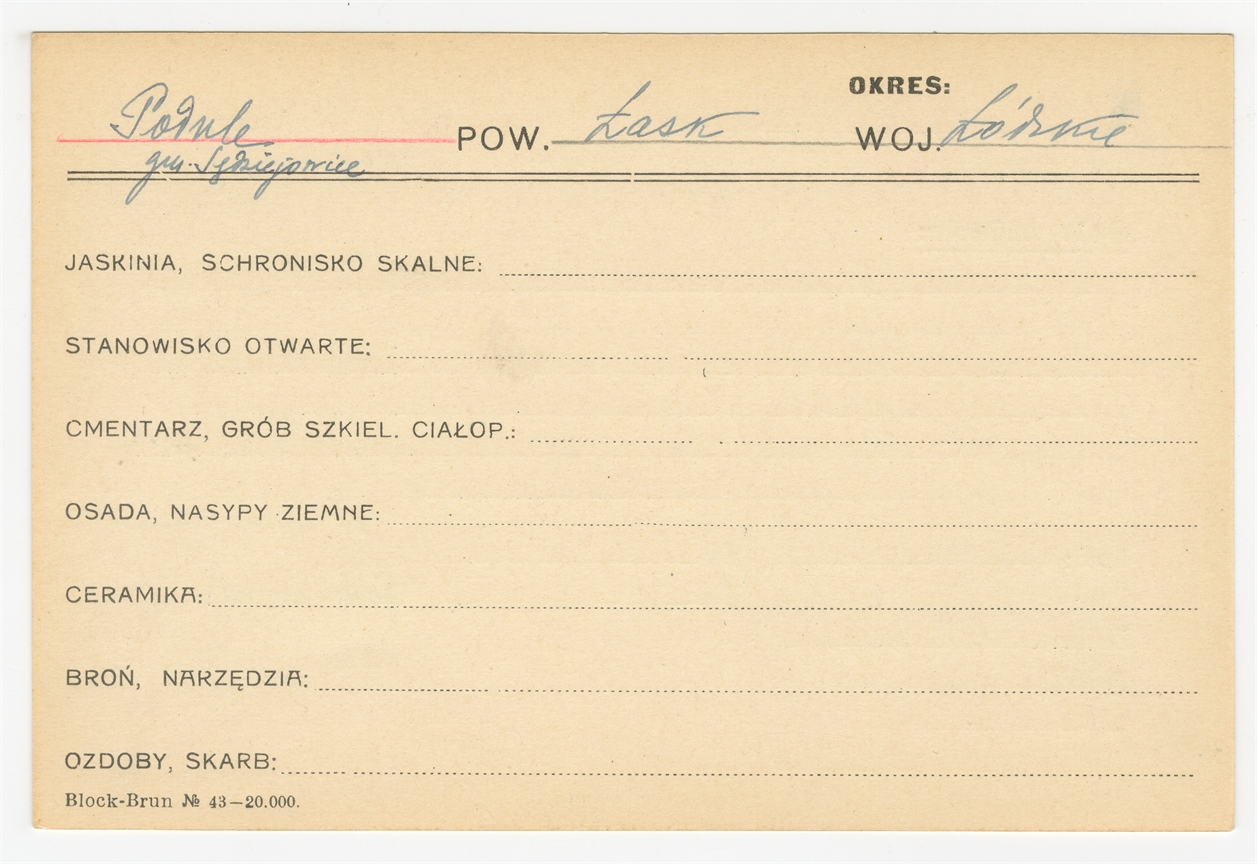 OKRES:
Podule POW. Łask WOJ. Łódzkie
gm. Sędziejowice
JASKINIA, SCHRONISKO SKALNE:
STANOWISKO OTWARTE:
CMENTARZ, GRÓB SZKIEL. CIAŁOP.:
OSADA, NASYPY ZIEMNE:
CERAMIKA:
BROŃ, NARZĘDZIA:
OZDOBY, SKARB:
Block-Brun № 43—20.000.